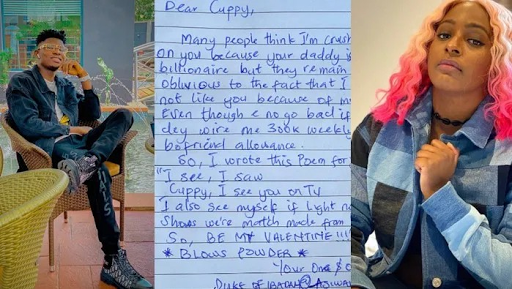 Dear Cuppy,
Many people think I'm crush
on you because your daddy is
billionaire but they remain
oblivious to the fact that I
not like you because of m
Even though e no go bad if
dey wire me 300k weekly
bofriend allowance.
So, I wrote this Poem for
"I see, I saw
Cuppy, I see you on TV
I also see myself if light n
Shows we're match made from
So, BE MY VALENTINE!!!!
* BLOWS POWDER *
Your One & O
DUKE OF IBADAN @AJIWA